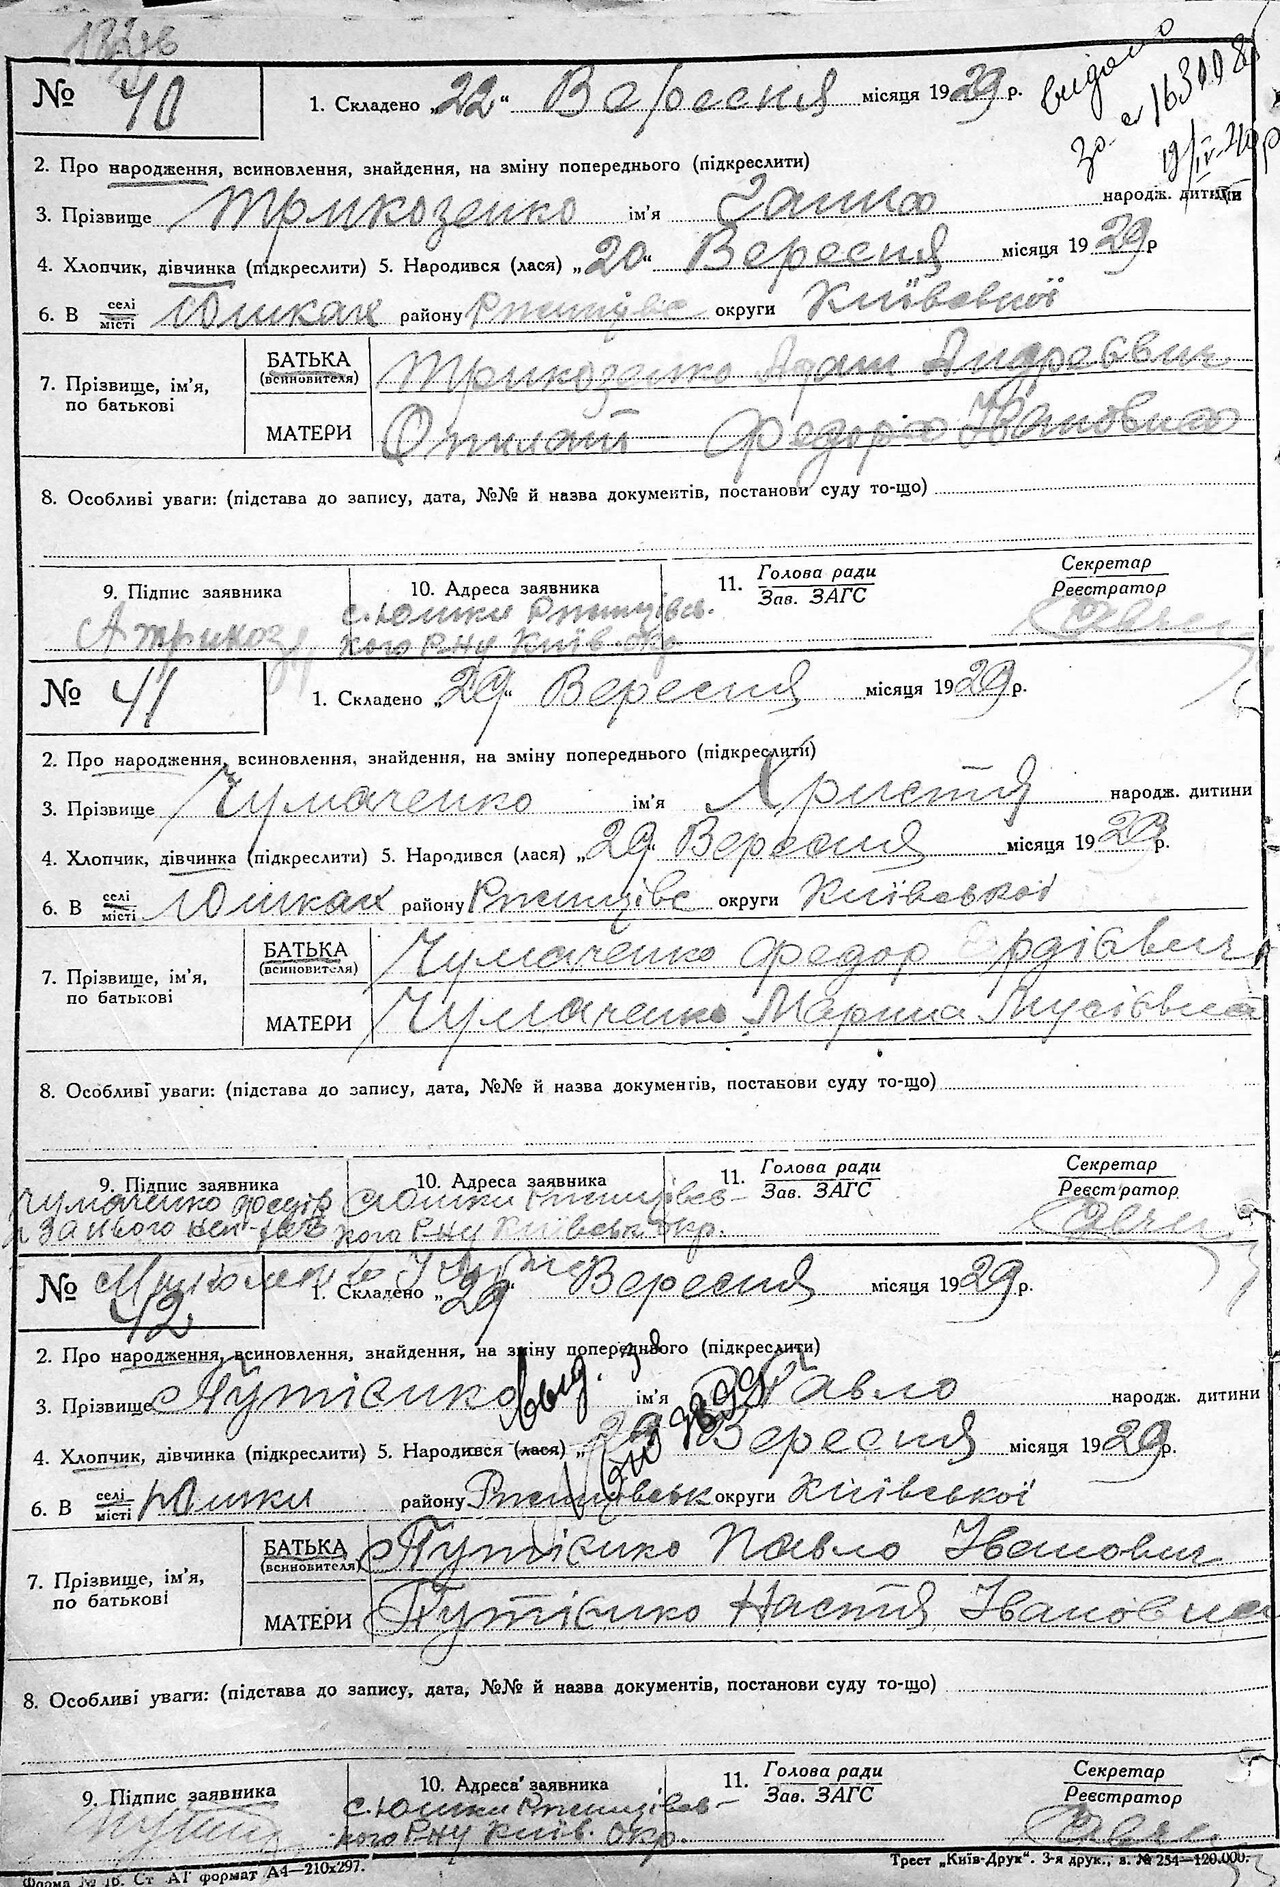 № 40
1. Складено „22“ Вересня місяця 1929 р.
видано
19/IV-
2. Про народження, всиновлення, знайдення, на зміну попереднього (підкреслити)
3. Прізвище Трикозенко ім'я Ганна народж. дитини
4. Хлопчик, дівчинка (підкреслити) 5. Народився (лася) „20“ Вересня місяця 1929 р
6. В селі/місті Юшках району Ржищівс округи Київської
7. Прізвище, ім'я, по батькові
БАТЬКА (всиновителя) Трикозенко Адам Андреєвич
МАТЕРИ Федора Івановна
8. Особливі уваги: (підстава до запису, дата, №№ й назва документів, постанови суду то-що)
9. Підпис заявника
10. Адреса заявника
11. Голова ради
Зав. ЗАГС
Секретар
Реєстратор
А Трикоз
с. Юшки Ржищівсь-
кого Р-ну Київ. Окр.
№ 41
1. Складено „29“ Вересня місяця 1929 р.
2. Про народження, всиновлення, знайдення, на зміну попереднього (підкреслити)
3. Прізвище Чумаченко ім'я Христя народж. дитини
4. Хлопчик, дівчинка (підкреслити) 5. Народився (лася) „29“ Вересня місяця 1929 р.
6. В селі/місті Юшках району Ржищівс округи Київської
7. Прізвище, ім'я, по батькові
БАТЬКА (всиновителя) Чумаченко Федор
МАТЕРИ Чумаченко Марина Мусіївна
8. Особливі уваги: (підстава до запису, дата, №№ й назва документів, постанови суду то-що)
9. Підпис заявника
10. Адреса заявника
11. Голова ради
Зав. ЗАГС
Секретар
Реєстратор
Чумаченко Федір
за нього
с Юшки Ржищівсь-
кого Р-ну Київськ. Окр.
№ 42
1. Складено „29“ Вересня місяця 1929 р.
2. Про народження, всиновлення, знайдення, на зміну попереднього (підкреслити)
3. Прізвище Путієнко ім'я Павло народж. дитини
4. Хлопчик, дівчинка (підкреслити) 5. Народився (лася) „29“ Вересня місяця 1929 р.
6. В селі/місті Юшки району Ржищовськ округи Київської
7. Прізвище, ім'я, по батькові
БАТЬКА (всиновителя) Путієнко Павло Іванович
МАТЕРИ Путієнко Настя Івановна
8. Особливі уваги: (підстава до запису, дата, №№ й назва документів, постанови суду то-що)
9. Підпис заявника
10. Адреса заявника
11. Голова ради
Зав. ЗАГС
Секретар
Реєстратор
с. Юшки Ржищівсь-
кого Р-ну Київ. Окр.
Форма № 16. Ст АІ формат А4—210х297.
Трест „Київ-Друк“. 3-я друк., з. № 254—120.000.